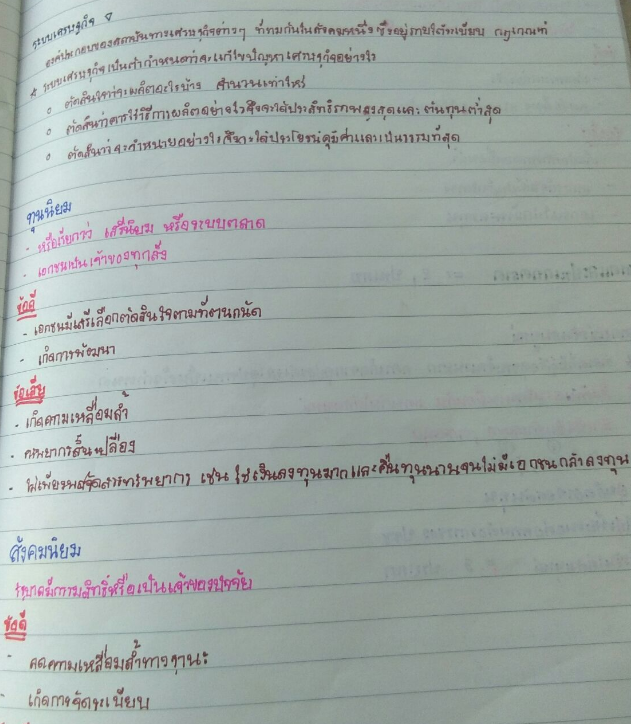 ระบบเศรษฐกิจ
องค์ประกอบของสถาบันทางเศรษฐกิจต่างๆ ที่รวมกันในสังคมหนึ่ง ซึ่งอยู่ภายใต้ระเบียบ กฎเกณฑ์
* ระบบเศรษฐกิจเป็นตัวกำหนดว่าจะแก้ไขปัญหาเศรษฐกิจอย่างไร
o ตัดสินใจว่าจะผลิตอะไรบ้าง จำนวนเท่าไหร่
o ตัดสินว่าควรใช้วิธีการผลิตอย่างไรจึงจะได้ประสิทธิภาพสูงสุดและ ต้นทุนต่ำสุด
o ตัดสินว่าจะจำหน่ายอย่างไร จึงจะได้ประโยชน์คุ้มค่าและเป็นธรรมที่สุด
ทุนนิยม
- หรือเรียกว่า เสรีนิยม หรือระบบตลาด
- เอกชนเป็นเจ้าของทุกสิ่ง
ข้อดี
- เอกชนมีเสรีเลือกตัดสินใจตามที่ตนถนัด
- เกิดการพัฒนา
ข้อเสีย
- เกิดความเหลื่อมล้ำ
- ทรัพยากรสิ้นเปลือง
- ไม่เพียงพอจัดสรรทรัพยากร เช่น ใช้เงินลงทุนมากและคืนทุนนานจนไม่มีเอกชนกล้าลงทุน
สังคมนิยม
รัฐบาลมีกรรมสิทธิ์หรือเป็นเจ้าของปัจจัย
ข้อดี
- ลดความเหลื่อมล้ำทางฐานะ
- เกิดการจัดระเบียบ